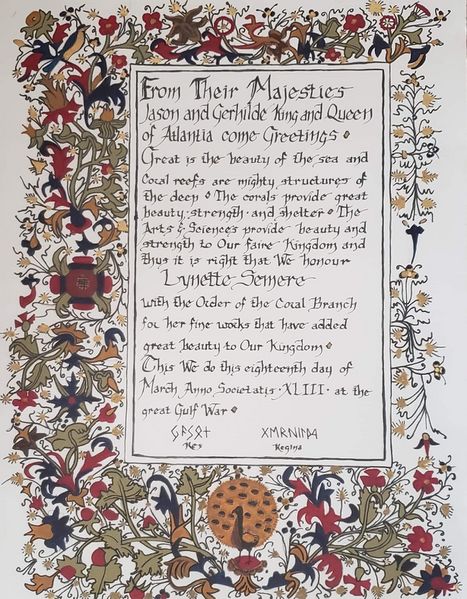 From Their Majesties
Jason and Gerhilde King and Queen
of Atlantia come Greetings
Great is the beauty of the sea and
Coral reefs are mighty structures of
the deep The corals provide great
beauty, strength and shelter The
Arts & Sciences provide beauty and
strength to Our faire Kingdom and
thus it is right that We honour
Lynette Semere
with the Order of the Coral Branch
for her fine works that have added
great beauty to Our Kingdom
This We do this eighteenth day of
March Anno Societatis XLIII at the
great Gulf War
Rex Regina